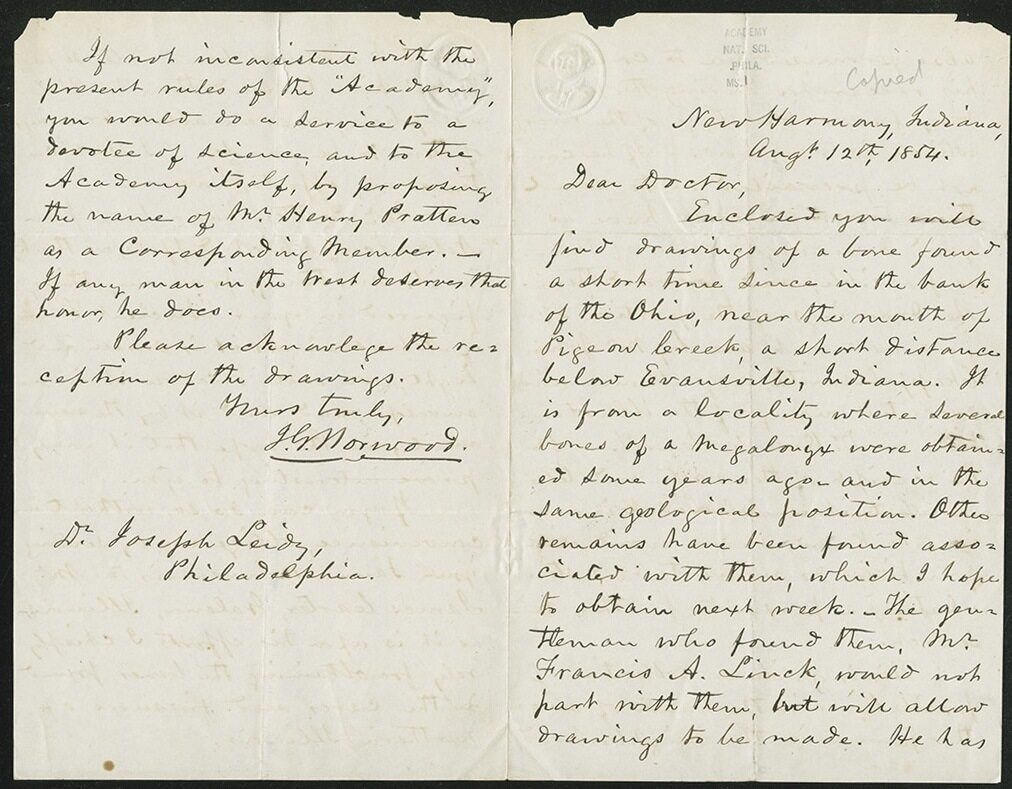 If not inconsistent with the
present rules of the "Academy",
you would do a service to a
devotee of science, and to the
Academy itself, by proposing
the name of Mr. Henry Pratten
as a Corresponding Member. —
If any man in the West deserves that
honor, he does.
Please acknowlege the re=
ception of the drawings.
Yours truly,
J. G. Norwood.
Dr. Joseph Leidy,
Philadelphia.
ACADEMY
NAT. SCI.
PHILA.
MS.
Copied
New Harmony, Indiana,
Augt. 12th, 1854.
Dear Doctor,
Enclosed you will
find drawings of a bone found
a short time since in the bank
of the Ohio, near the mouth of
Pigeon Creek, a short distance
below Evansville, Indiana. It
is from a locality where several
bones of a Megalonyx were obtain=
ed some years ago - and in the
same geological position. Other
remains have been found asso=
ciated with them, which I hope
to obtain next week. — The gen=
tleman who found them, Mr.
Francis A. Linck, would not
part with them, but will allow
drawings to be made. He has